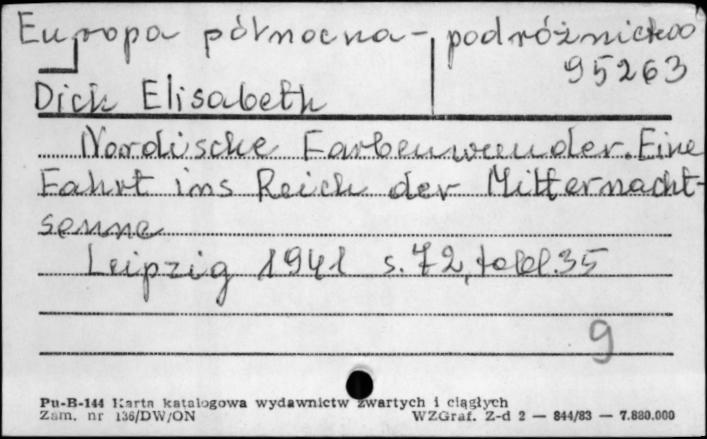 Europa północna - podróżnictwo
95263
Dick Elisabeth
Nordische Farbenwunder. Eine
Fahrt ins Reich der Mitternacht-
senne
Leipzig 1941 s. 72, tabl. 35
9
Pu-B-144 Karta katalogowa wydawnictw zwartych i ciągłych
Zam. nr 136/DW/ON WZGraf. Z-d 2 — 844/83 — 7.880.000